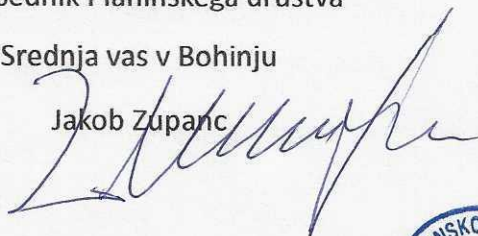 Planinskega društva
Srednja vas v Bohinju
Jakob Zupanc